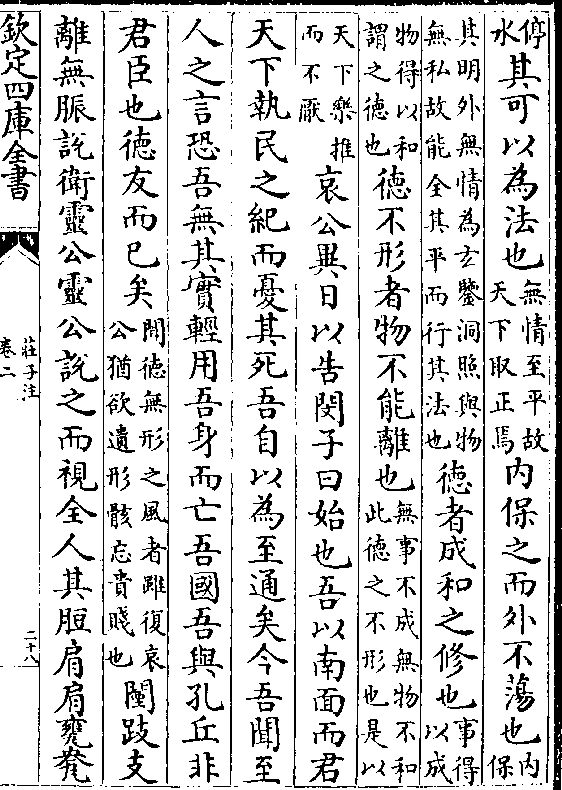 停水其可以為法也無情至平故天下取正焉內保之而外不蕩也內保
其明外無情為玄鑒洞照與物無私故能全其平而行其法也德者成和之修也事得以成
物得以和謂之德也德不形者物不能離也無事不成無物不和此德之不形也是以
天下樂推而不厭哀公異日以告閔子曰始也吾以南面而君
天下執民之紀而憂其死吾自以為至通矣今吾聞至
人之言恐吾無其實輕用吾身而亡吾國吾與孔丘非
君臣也德友而已矣聞德無形之風者雖復哀公猶欲遺形骸忘貴賤也闉跂支
離無脤說衛靈公靈公說之而視全人其脰肩肩甕㼜
欽定四庫全書
莊子注
卷二
二十八